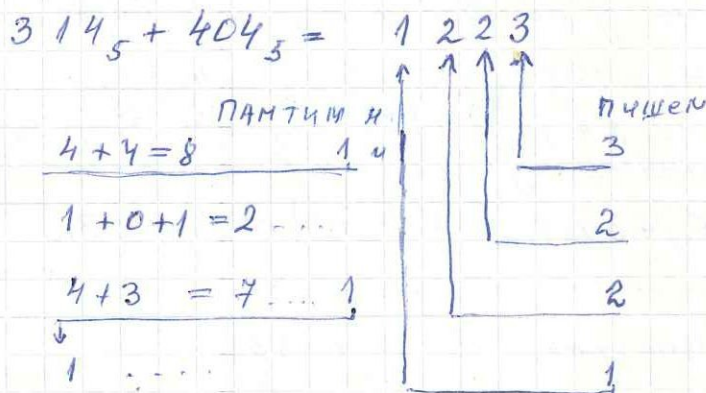 314₅ + 404₅ = 1 2 2 3
ПАМТИМ И ПИШЕМ
4 + 4 = 8 1 и 3
1 + 0 + 1 = 2 .... 2
4 + 3 = 7 .... 1 2
1 ..... 1